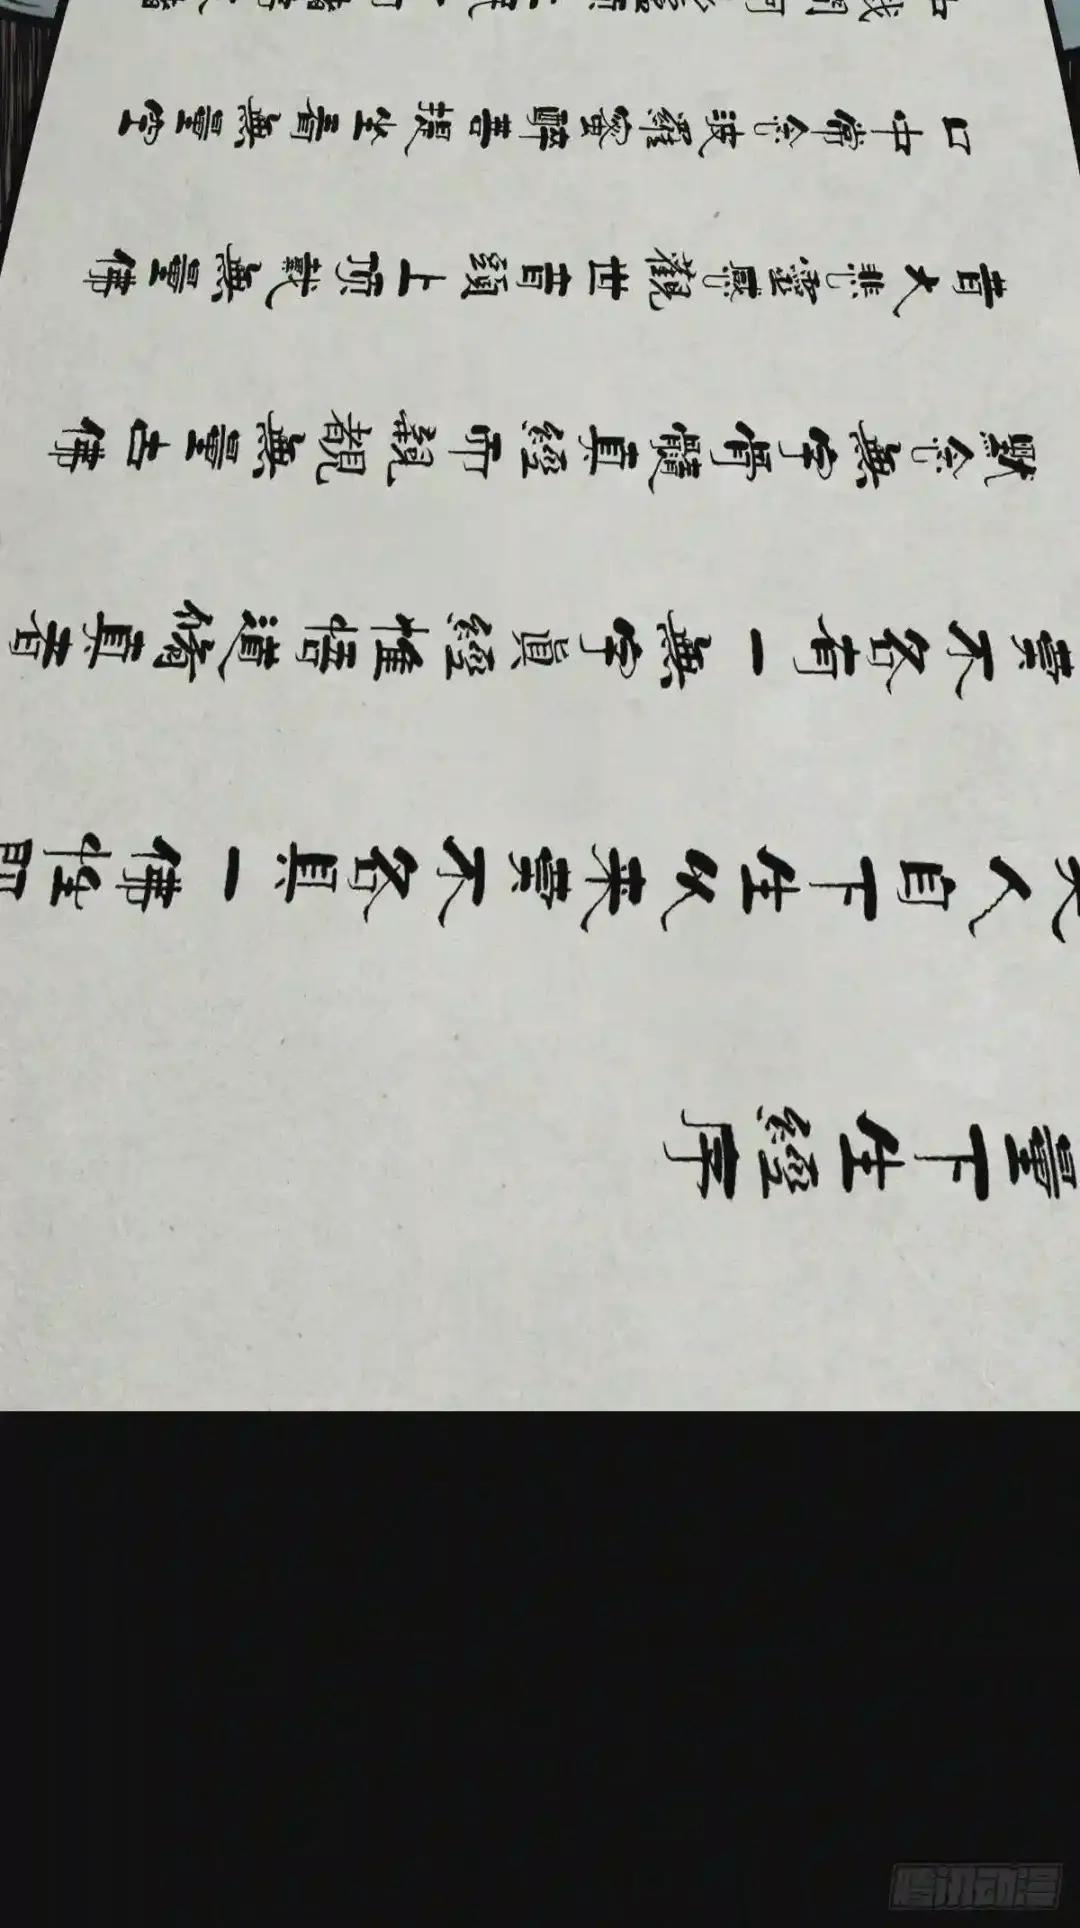 量下生經序
人自下生以来莫不各具一佛性即
莫不各有一無字眞經惟悟道脩真者
默念無字骨髓真經而親覩無量古佛
昔大悲靈感觀世音頭上頂戴無量佛
口中常念波羅蜜醉菩提坐看無量空
腾讯动漫